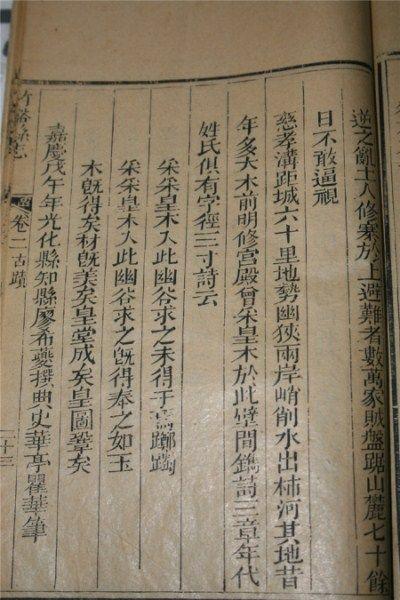 逆之亂土人修寨於上避難者數萬家賊盤踞山麓七十餘
日不敢逼視
慈孝溝距城六十里地勢幽狹兩岸峭削水出柿河其地昔
年多大木前明修宮殿曾采皇木於此壁間鐫詩三章年代
姓氏俱有字徑三寸詩云
采采皇木入此幽谷求之未得于焉躑躅
采采皇木入此幽谷求之旣得奉之如玉
木旣得矣材旣美矣皇堂成矣皇圖鞏矣
嘉慶戊午年光化縣知縣廖希夔撰典史華亭瞿華筆
竹谿縣志
卷二古蹟
十三